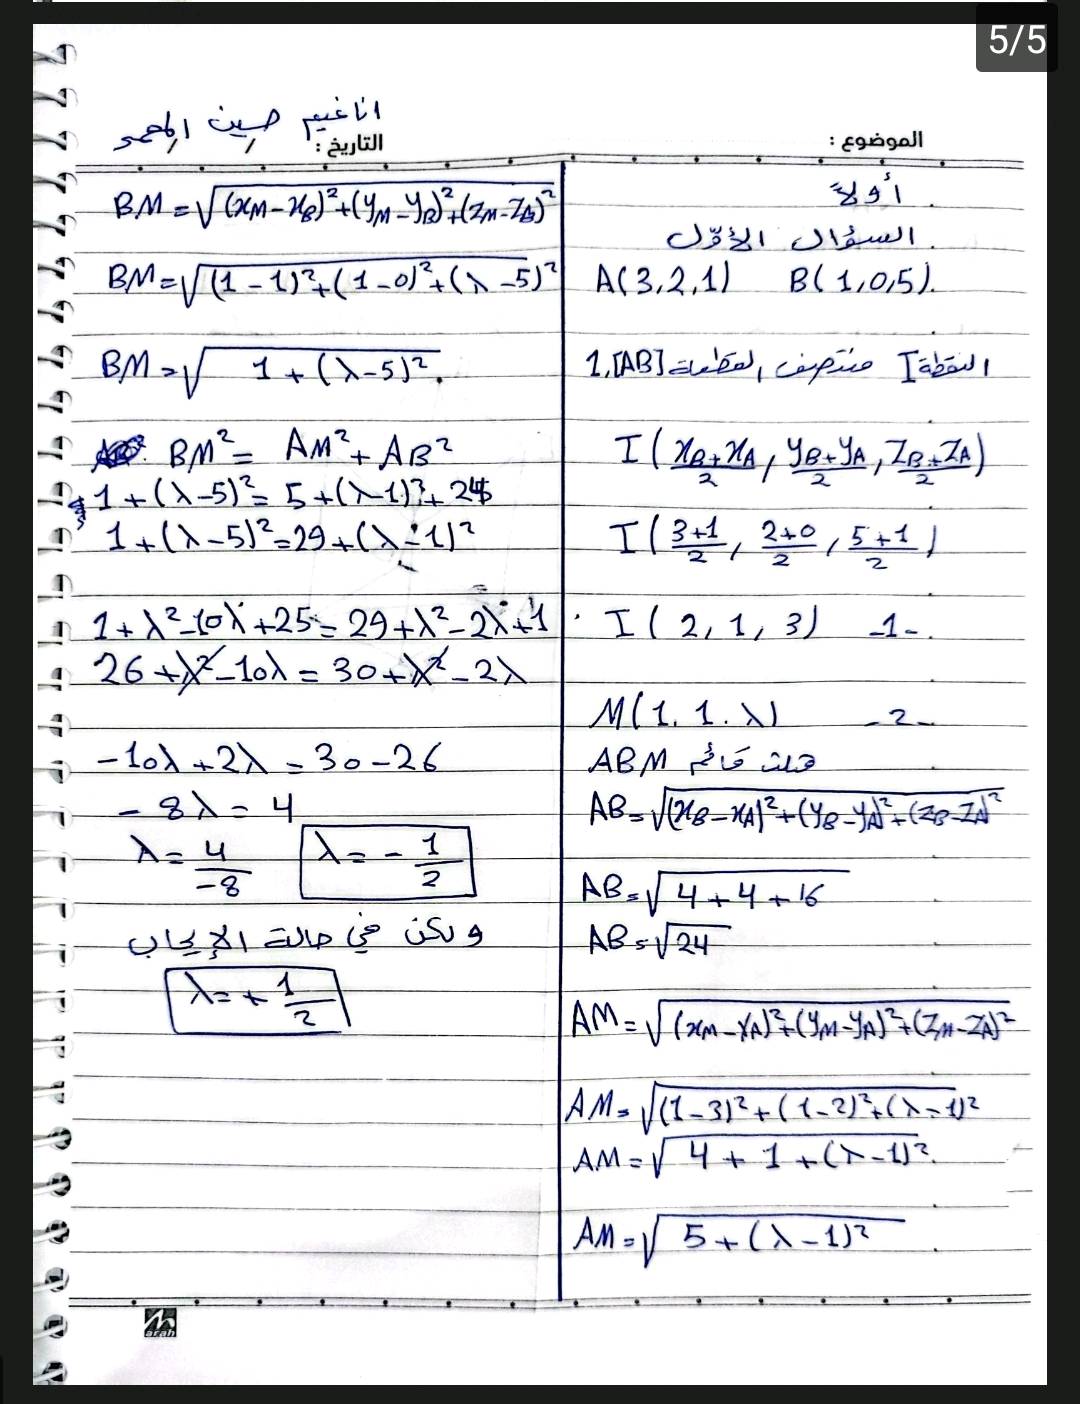 5/5
انا غنيم حسين المحمد
الموضوع :
التاريخ :
أولاً
السؤال الأوّل
A(3,2,1) B(1,0,5).
1. [AB] النقطة I منتصف القطعة
I(xB+xA/2, yB+yA/2, zB+zA/2)
I(3+1/2, 2+0/2, 5+1/2)
I(2,1,3) -1-
M(1.1.λ) -2-
ABM قائم
AB=√(xB-xA)²+(yB-yA)²+(zB-zA)²
AB=√4+4+16
AB=√24
AM=√(xM-xA)²+(yM-yA)²+(zM-zA)²
AM=√(1-3)²+(1-2)²+(λ-1)²
AM=√4+1+(λ-1)².
AM=√5+(λ-1)²
BM=√(xM-xB)²+(yM-yB)²+(zM-zB)²
BM=√(1-1)²+(1-0)²+(λ-5)²
BM=√1+(λ-5)².
BM²=AM²+AB²
1+(λ-5)²=5+(λ-1)²+24
1+(λ-5)²=29+(λ-1)²
1+λ²-10λ+25=29+λ²-2λ+1
26+λ²-10λ=30+λ²-2λ
-10λ+2λ=30-26
-8λ=4
λ=4/-8 λ=-1/2
ولكن في حالة الإيجاب
λ=+1/2
arah